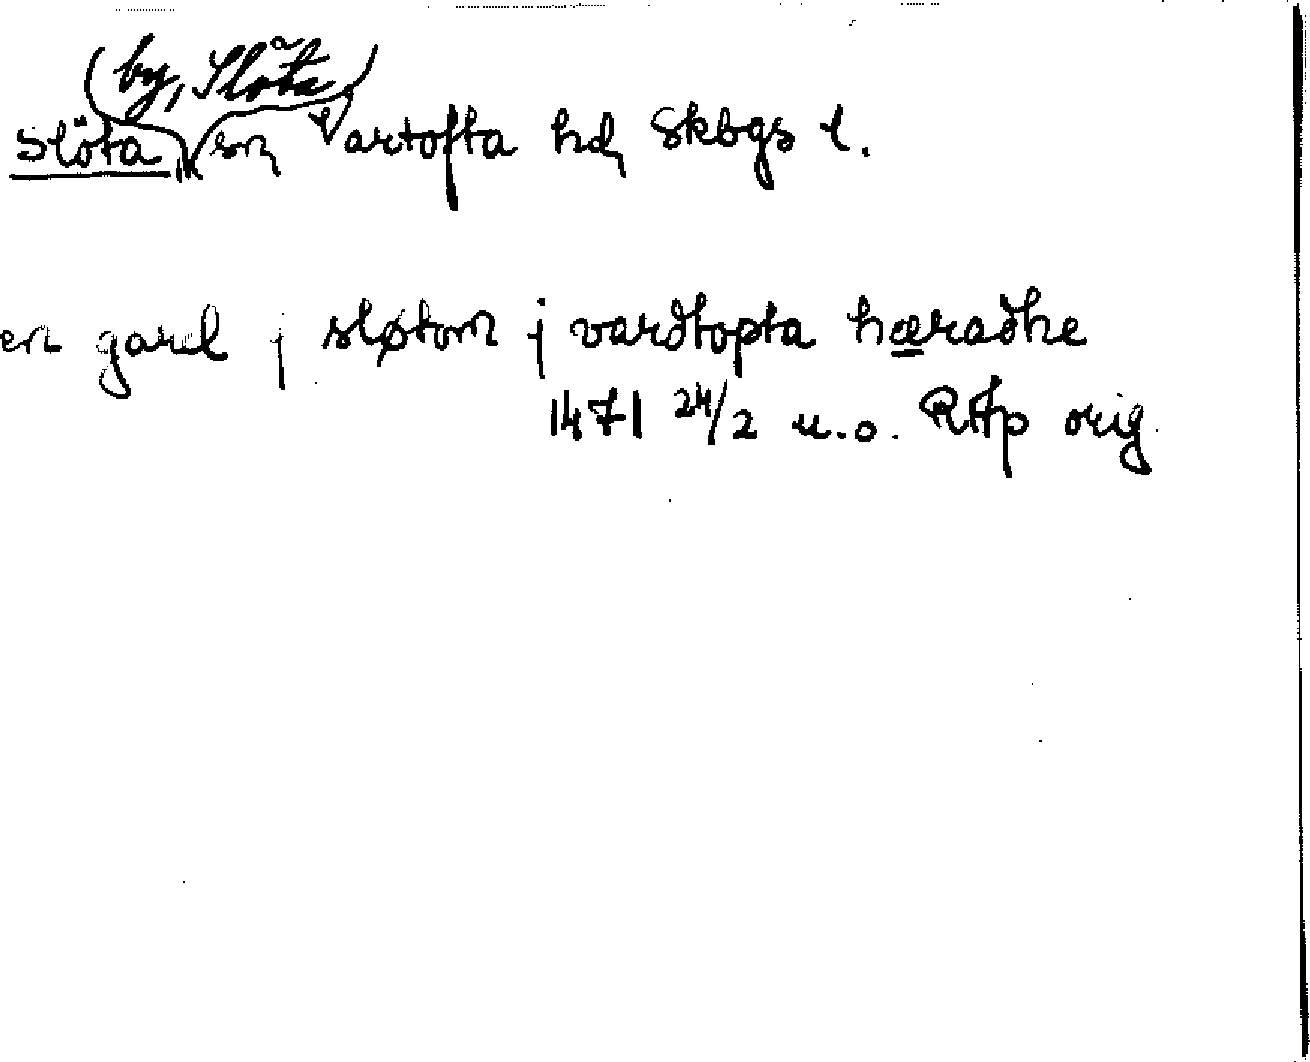 (by, Slöta)
Slöta sn Vartofta hd, Skbgs l.
en gard j sløtom j vardtopta hæradhe
1471 24/2 u.o. RAp orig.